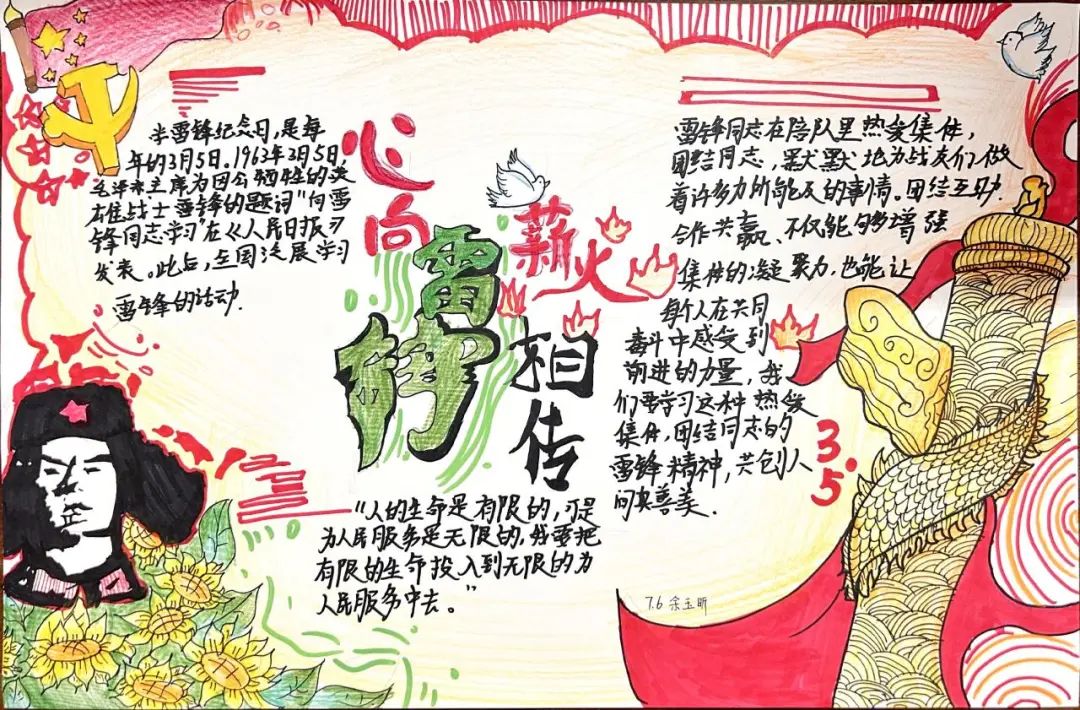 半雷锋纪念日,是每
年的3月5日.1963年3月5日,
毛泽东主席为因公牺牲的英
雄战士雷锋的题词“向雷
锋同志学习”在《人民日报》
发表。此后,全国泛展学习
雷锋的活动.
心向
雷锋
薪火
相传
“人的生命是有限的,可是
为人民服务是无限的,我要把
有限的生命投入到无限的为
人民服务中去。”
雷锋同志在部队里热爱集体,
团结同志,默默地为战友们做
着许多力所能及的事情。团结互助.
合作共赢、不仅能够增强
集体的凝聚力,也能让
每个人在共同
奋斗中感受到
前进的力量,我
们要学习这种热爱
集体,团结同志的
雷锋精神,共创人
间真善美.
3.5
7.6 余玉昕